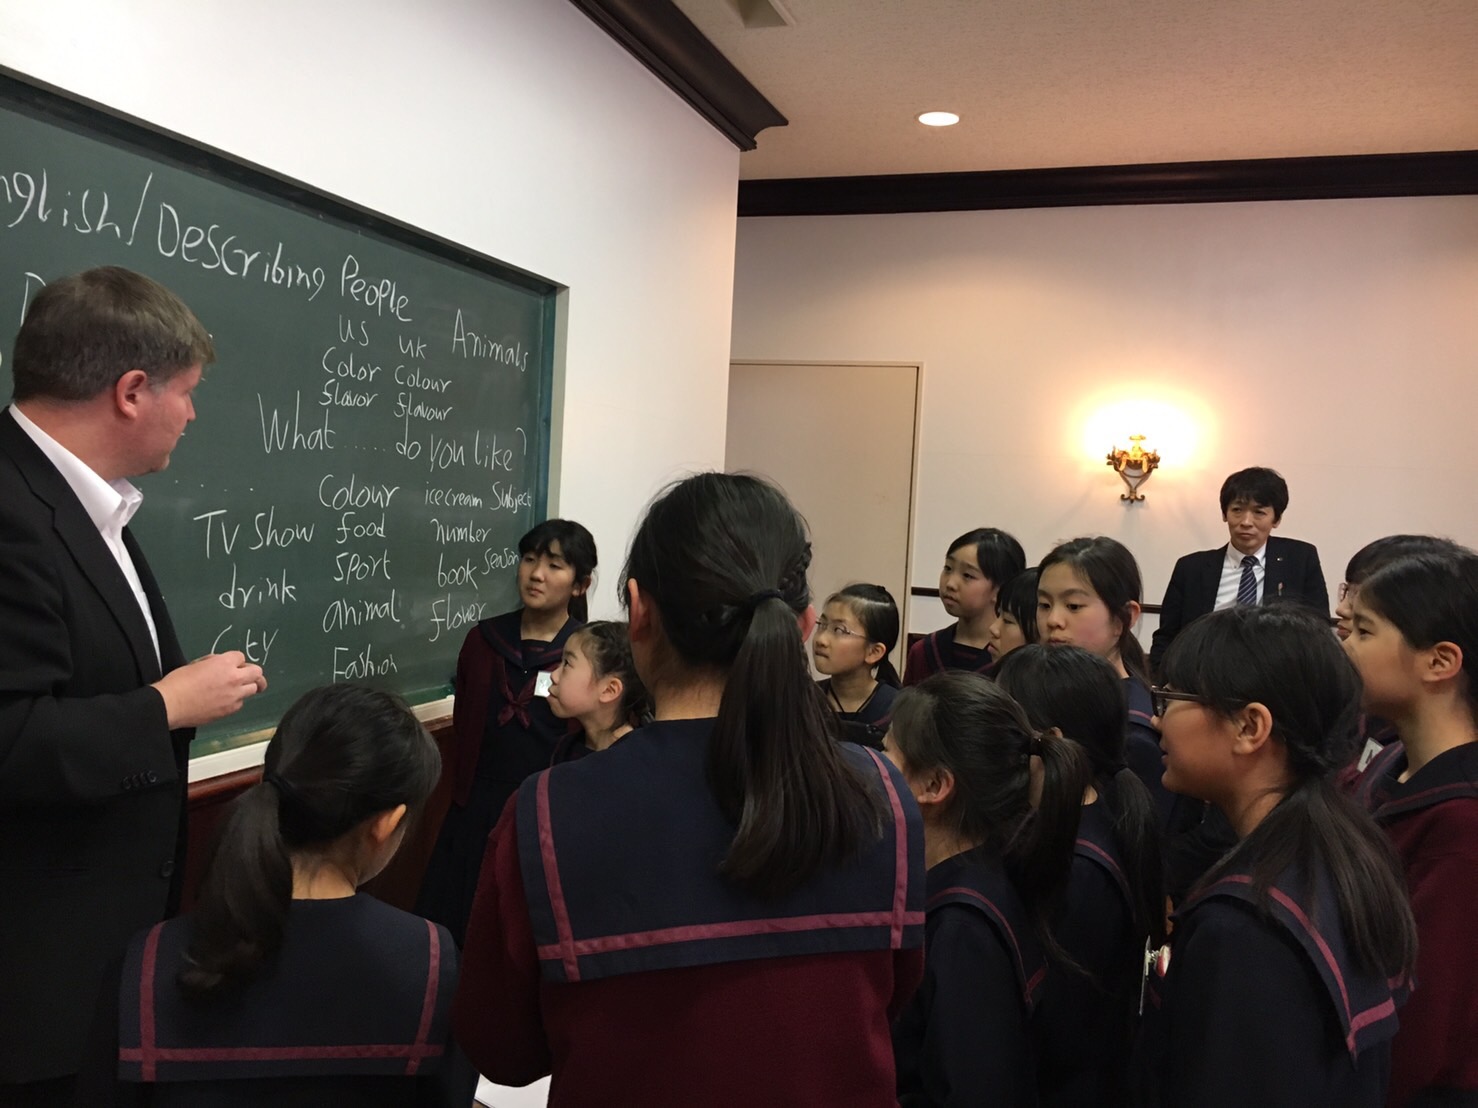 nglish/Describing People
US UK Animals
Color Colour
flavor flavour
What ..... do you like?
Colour icecream Subject
TV Show food number
sport book Season
drink animal flower
City Fashion